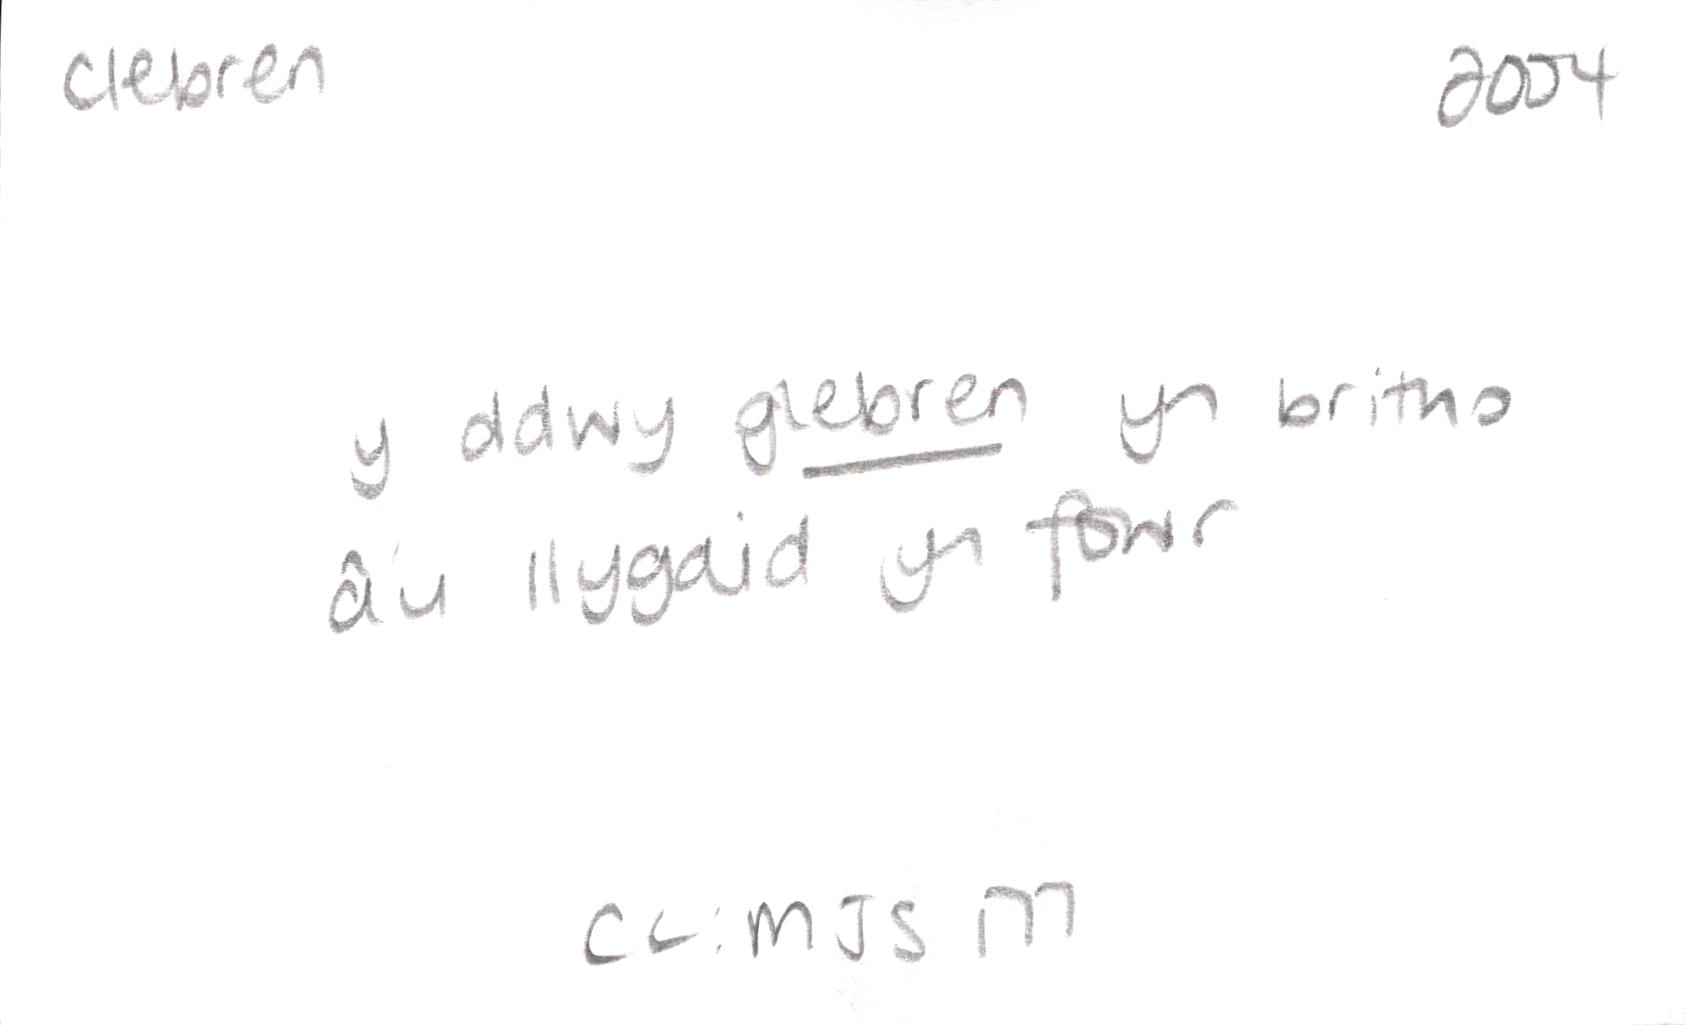 clebren 2004
y ddwy glebren yn britho
â'u llygaid yn fowr
CC:MJS 111